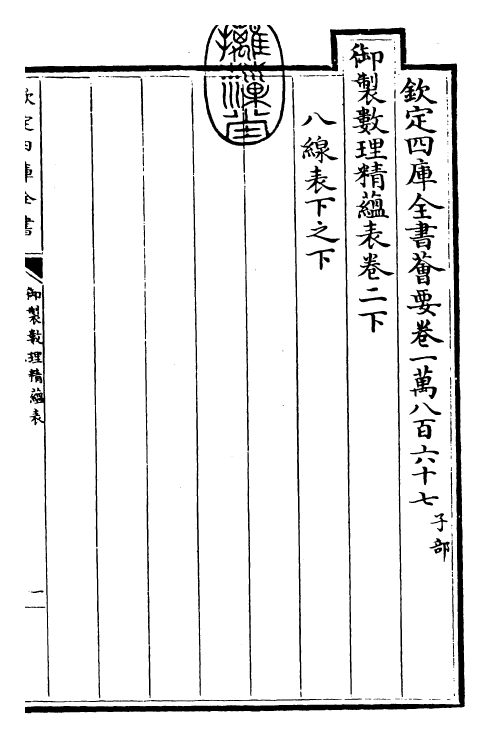 欽定四庫全書薈要卷一萬八百六十七 子部
御製數理精蘊表卷二下
八線表下之下
摛藻堂
欽定四庫全書
御製數理精蘊表
一